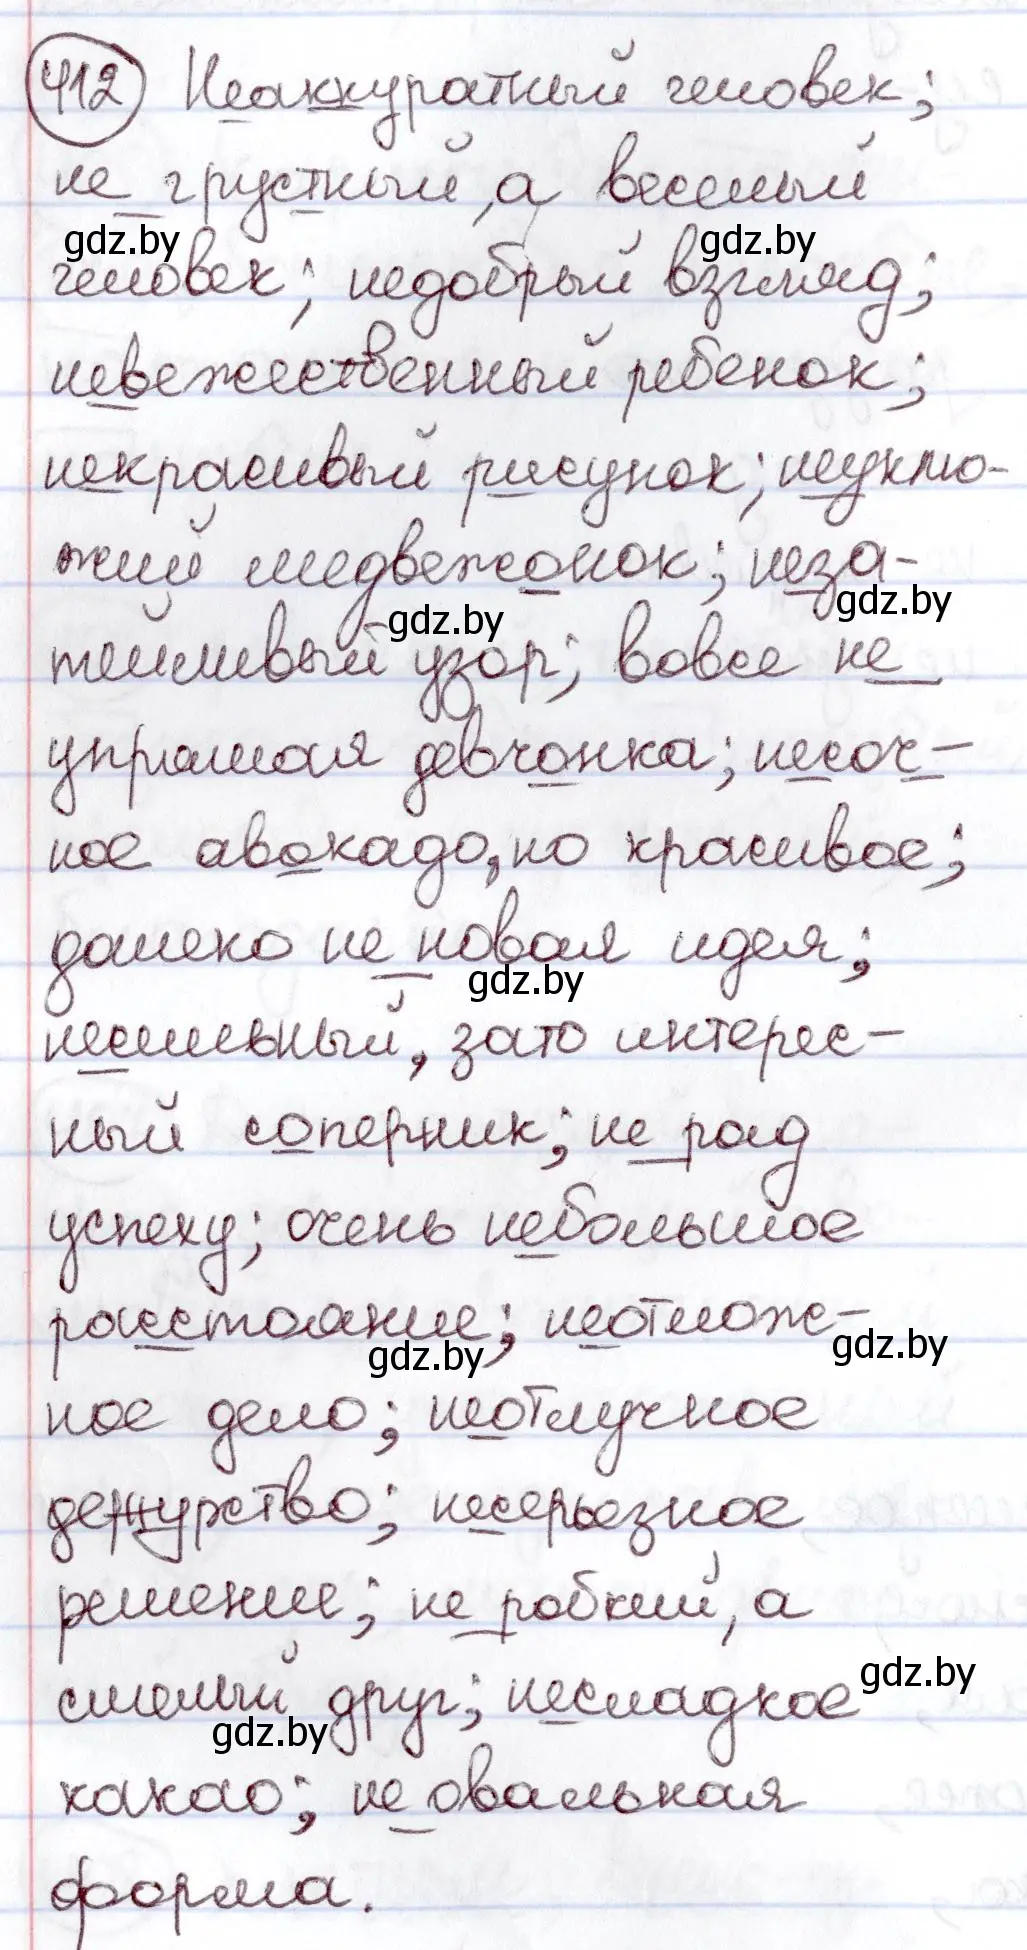 412 Неаккуратный человек;
не грустный, а веселый
gdz.by gdz.by
человек; недобрый взгляд;
невежественный ребенок;
некрасивый рисунок; неуклю-
жий медвежонок; неза-
gdz.by gdz.by
тейливый узор; вовсе не
упрямая девчонка; несоч-
ное авокадо, но красивое;
далеко не новая идея;
gdz.by
несильный, зато интерес-
ный соперник; не рад
успеху; очень небольшое
расстояние; неотлож-
gdz.by gdz.by
ное дело; неотлучное
дежурство; несерьезное
решение; не робкий, а
смелый друг; несладкое
gdz.by gdz.by
какао; не овальная
форма.